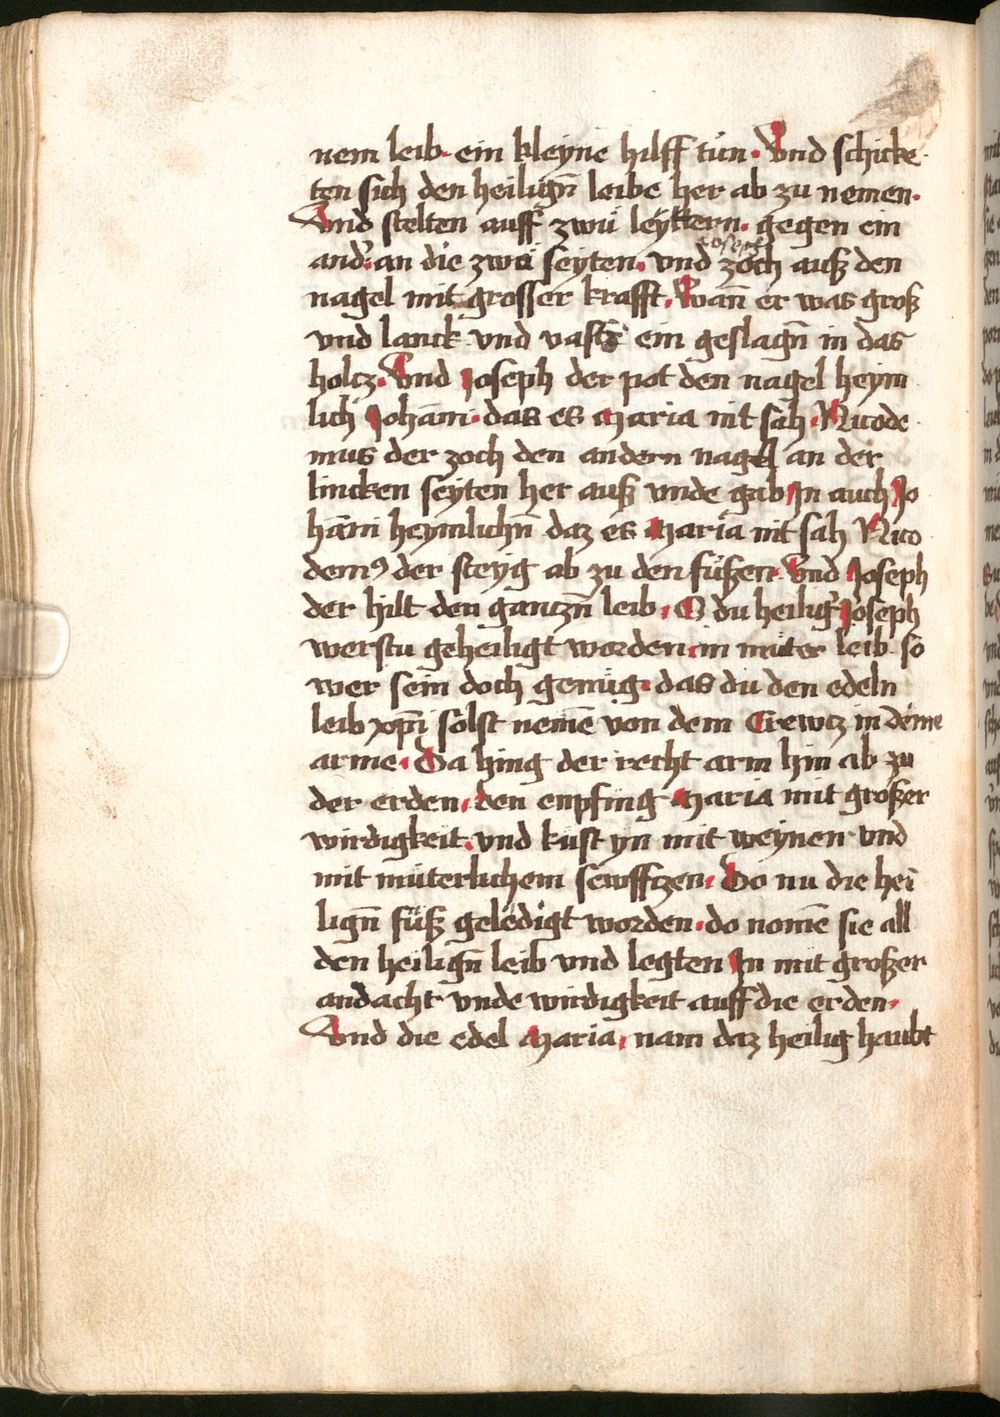 nem leib · ein kleyne hilff tun · Vnd schicke
ten sich den heilign̄ leibe her ab zu nemen ·
Vnd stelten auff zwu leyttern · gegen ein
and᷑ · an die zwu seyten · vnd joseph zoch auß den
nagel mit grosser krafft · Wan̄ er was groß
vnd lanck vnd vast ein geslagn̄ in das
holcz · Vnd Joseph der pot den nagel heym
lich Johāni · das es Maria nit sah · Nicode
mus der zoch den andern nagel an der
lincken seyten her auß vnde gab Jn auch Jo
hāni heymlichn̄ daz es Maria nit sah Nico
demꝰ der steyg ab zu den fußen · Vnd Joseph
der hilt den gantzn̄ leib · O du heilig᷑ Joseph
werstu geheiligt worden in muter leib so
wer sein doch genug · das du den edeln
leib xp̄i solst nemē von dem Crewtz in deine
arme · Da hing der recht arm hin ab zu
der erden · den enpfing Maria mit großer
wirdigkeit · vnd kust yn mit weynen vnd
mit muterlichem sewfftzen · Do nu die hei
lign̄ fuß geledigt worden · do nomē sie all
den heilign̄ leib vnd legten Jn mit großer
andacht vnde wirdigkeit auff die erden ·
Vnd die edel Maria · nam daz heilig haubt